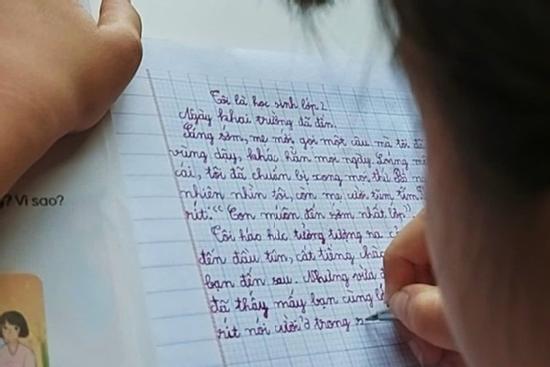 Tôi là học sinh lớp 2
Ngày khai trường đã đến.
Sáng sớm, mẹ mới gọi một câu mà tôi đã
vùng dậy, khác hẳn mọi ngày. Loáng mộ
cái, tôi đã chuẩn bị xong mọi thứ. Bố n
nhiên nhìn tôi, còn mẹ cười tủm tỉm.
rít: "Con muốn đến sớm nhất lớp"
Tôi háo hức tưởng tượng ra c
đến đầu tiên, cất tiếng chào
bạn đến sau. Nhưng vừa đ
đã thấy mấy bạn cùng l
rít nói cười ở trong s
? Vì sao?